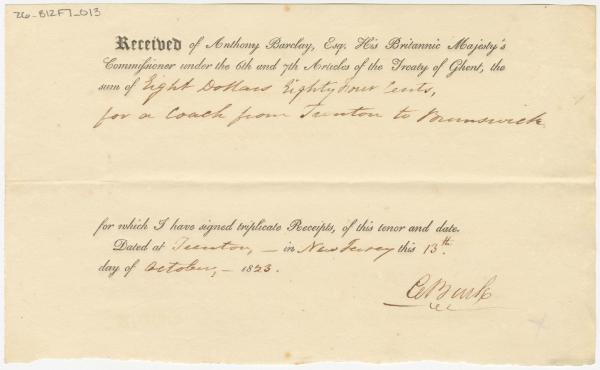 26-B12F7_013
Received of Anthony Barclay, Esq. His Britannic Majesty's
Commissioner under the 6th and 7th Articles of the Treaty of Ghent, the
sum of Eight Dollars Eighty four Cents,
for a Coach from Trenton to Brunswick
for which I have signed triplicate Receipts, of this tenor and date.
Dated at Trenton, — in New Jersey this 13th.
day of October, — 1823.